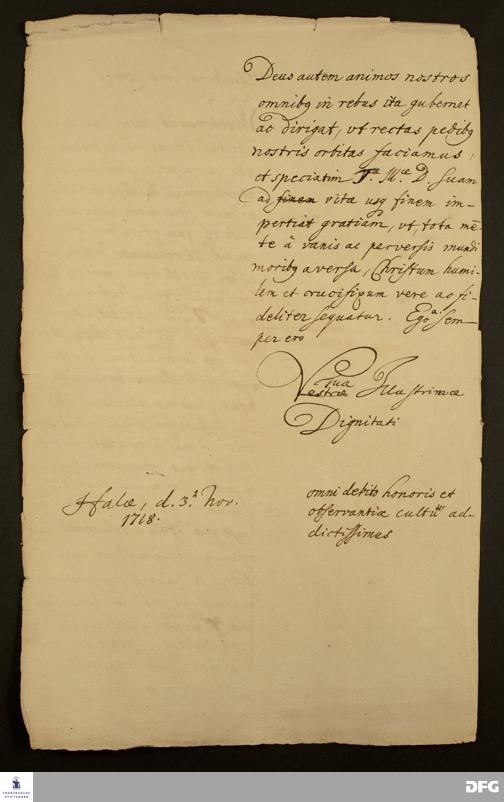 Deus autem animos nostros
omnibꝫ in rebus ita gubernet
ac dirigat, vt rectas pedibꝫ
nostris orbitas faciamus,
et speciatim Mæ. D. suam
ad finem vitæ usqꝫ finem im-
pertiat gratiam, vt, tota mē-
te â vanis ac perversis mundi
moribꝫ aversa, Christum humi-
lem et crucifixum vere ac fi-
deliter sequatur. Ego sem-
per ero
Tuæ
Vestræ Illustrimæ
Dignitati
omni debito honoris et
observantiæ cultu ad-
dictissimus
Halæ, d. 3. Nov.
1718.
FRANCKESCHE
STIFTUNGEN
DFG